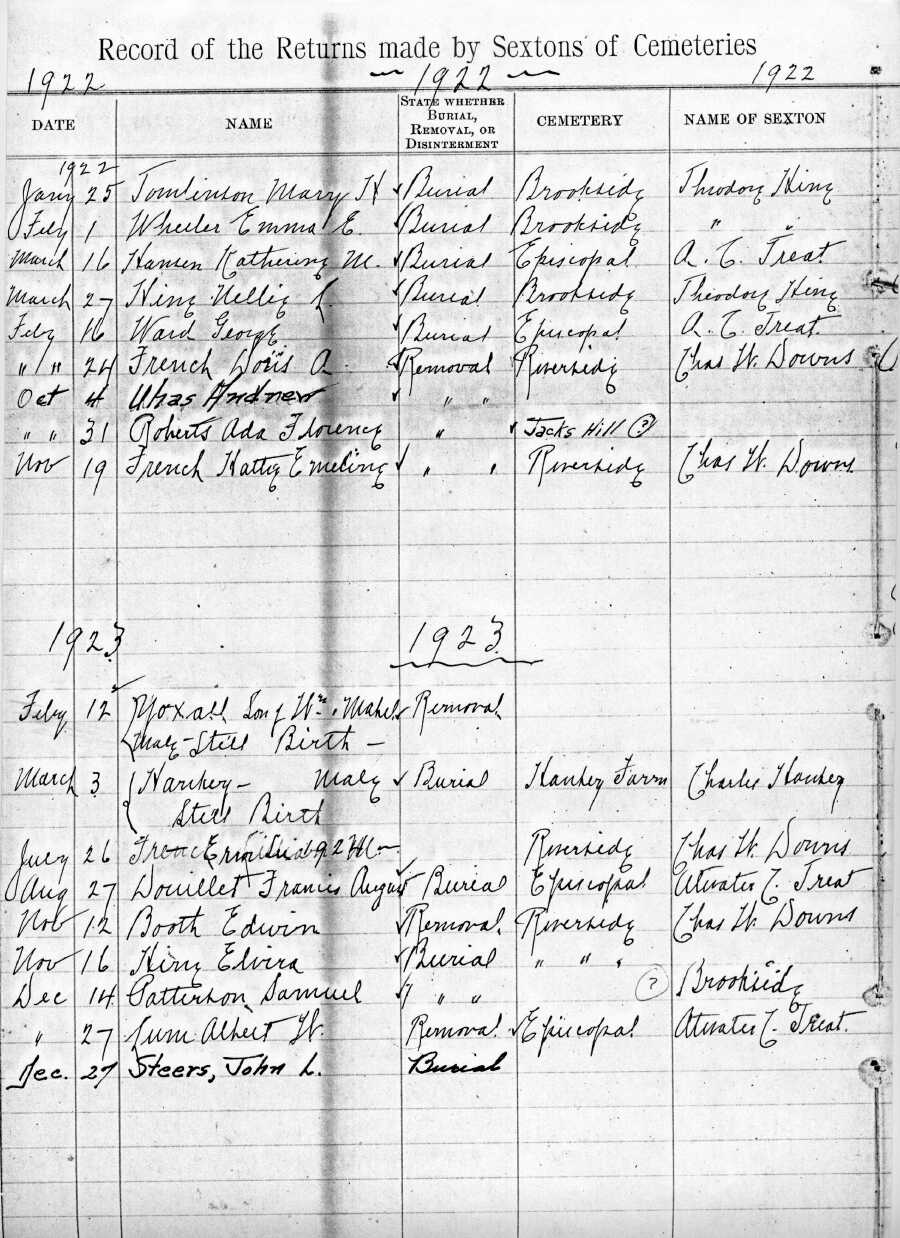 Record of the Returns made by Sextons of Cemeteries
1922 1922 1922
DATE NAME STATE WHETHER BURIAL, REMOVAL, OR DISINTERMENT CEMETERY NAME OF SEXTON
1922
Jany 25 Tomlinson Mary H Burial Brookside Theodore King
Feby 1 Wheeler Emma E Burial Brookside " "
March 16 Hansen Katherine M. Burial Episcopal A. C. Treat
March 27 King Nellie L. Burial Brookside Theodore King
Feby 16 Ward George Burial Episcopal A. C. Treat
" " 24 French Doris A. Removal Riverside Chas W. Downs
Oct 4 Uhas Andrew " "
" " 31 Roberts Ada Florence " Jacks Hill (?)
Nov 19 French Hattie Emeline " " Riverside Chas W. Downs
1923 1923
Feby 12 Yoxall Son of Wm. Mabel Removal
Male Still Birth –
March 3 Hankey – Male Burial Hankey Farm Charlie Hankey
Still Birth
July 26 Riverside Chas W. Downs
Aug 27 Douillet Francis August Burial Episcopal Atwater C. Treat
Nov 12 Booth Edwin Removal Riverside Chas W. Downs
Nov 16 King Elvira Burial " " "
Dec 14 Patterson Samuel " " (?) Brookside
" 27 Albert W. Removal Episcopal Atwater C. Treat.
Dec. 27 Steers, John L. Burial